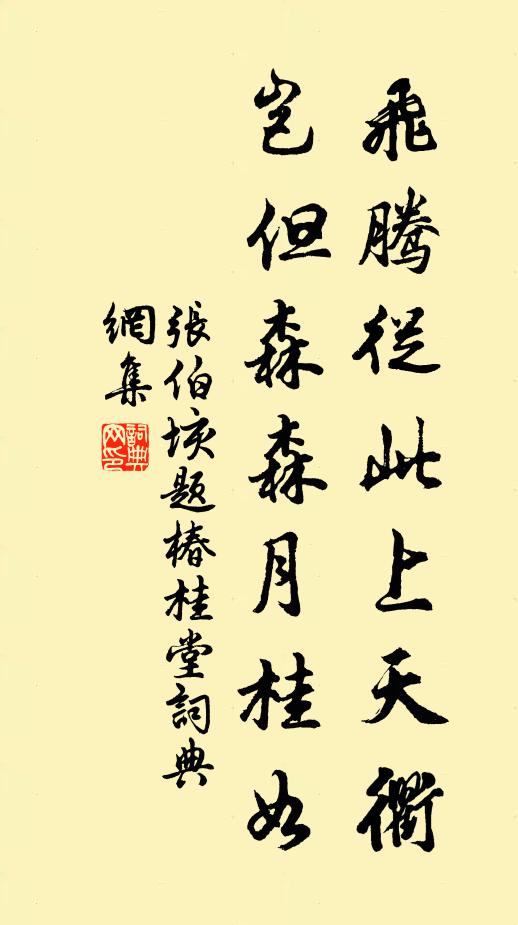 飛騰從此上天衢
豈但森森月桂如
張伯垓題椿桂堂詞典
網集
詞典
网印